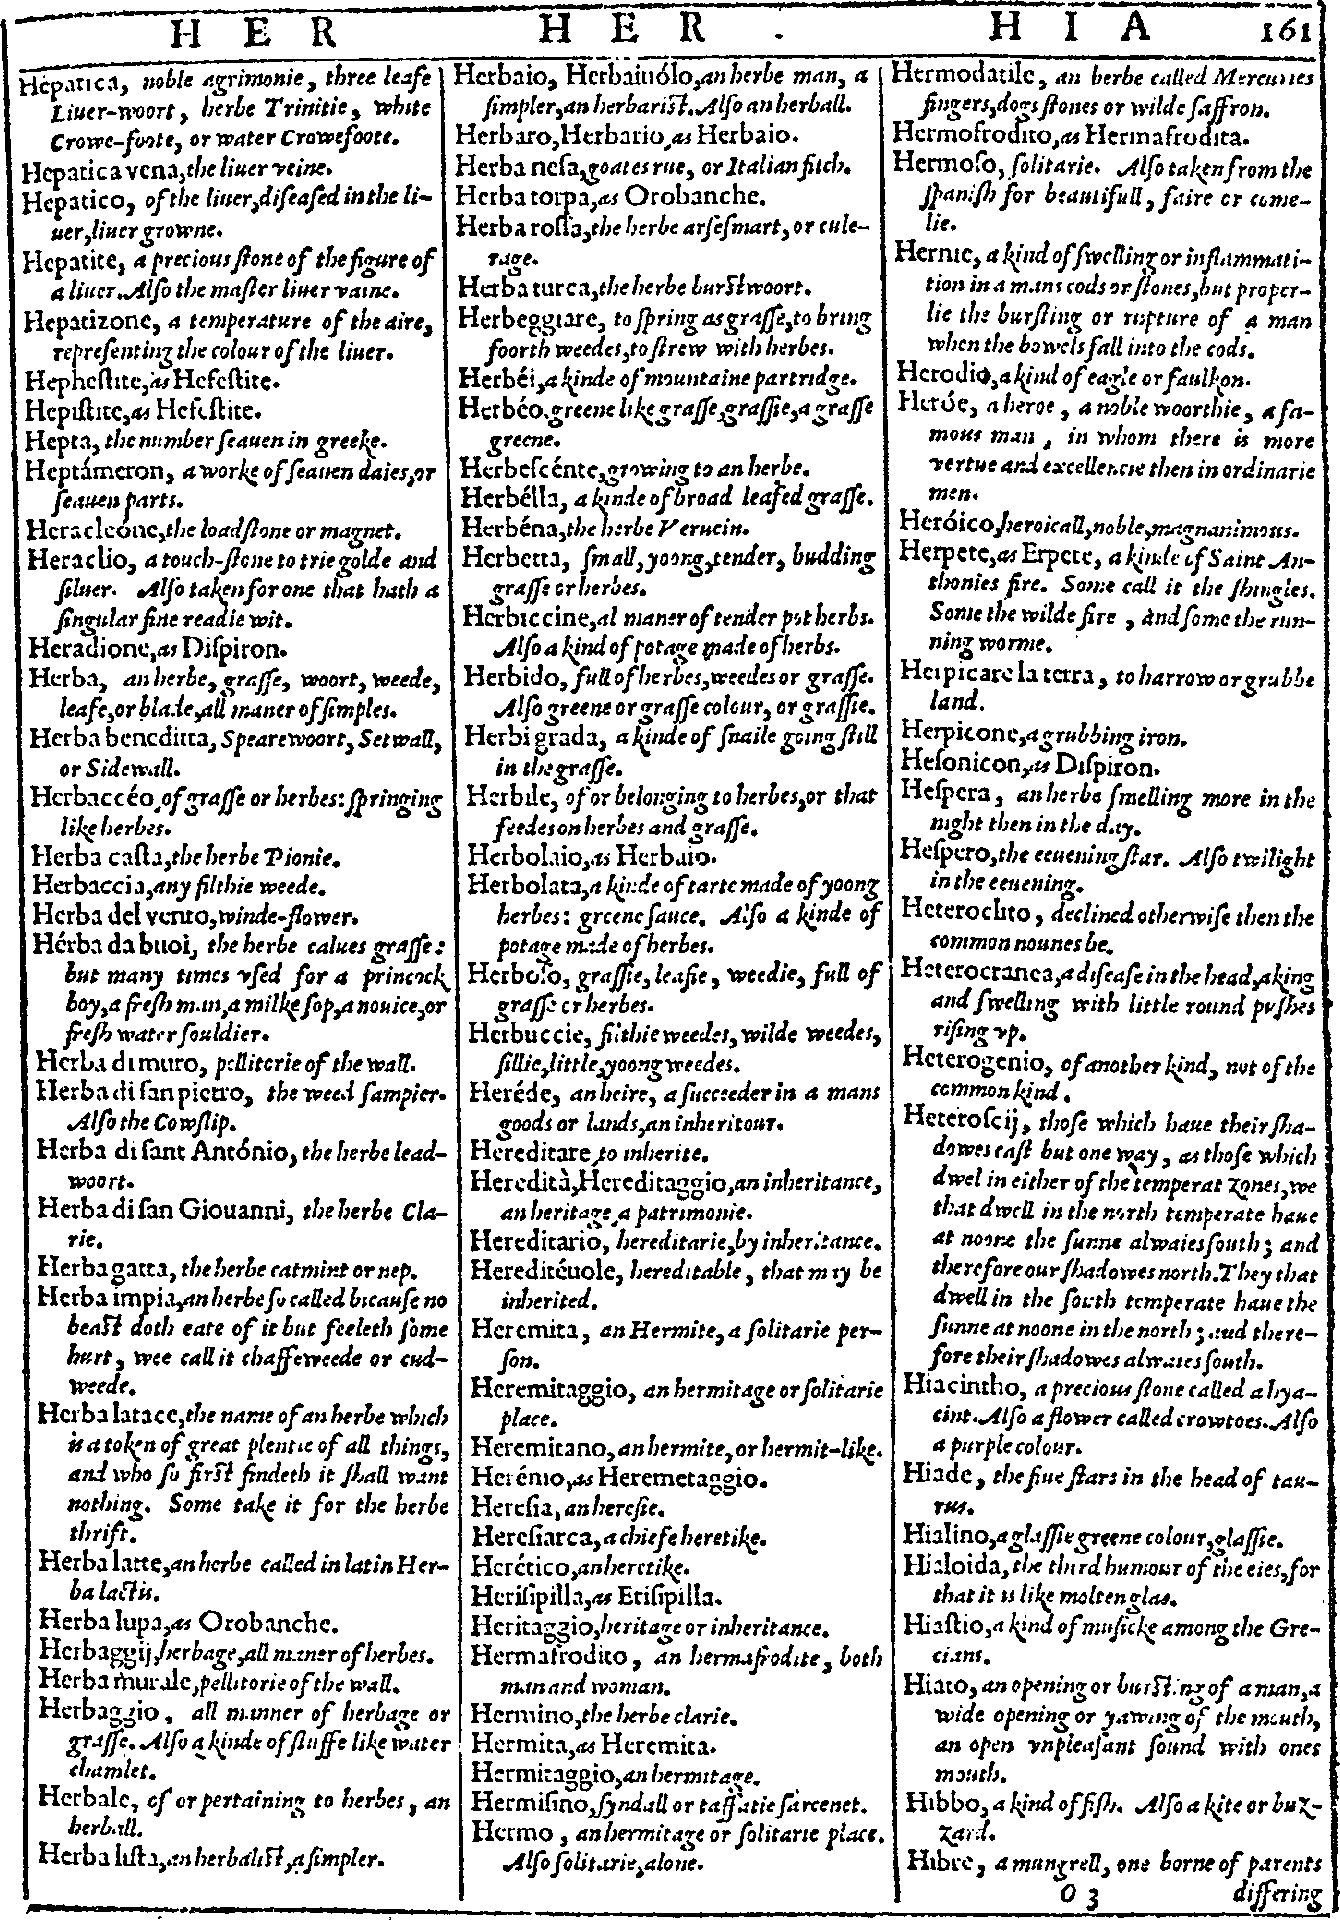 HER HER. HIA 161
Hepatica, noble agrimonie, three leafe
Liuer-woort, herbe Trinitie, white
Crowe-foote, or water Crowefoote.
Hepatica vena, the liuer veine.
Hepatico, of the liuer, diseased in the li-
uer, liuer growne.
Hepatite, a precious stone of the figure of
a liuer. Also the master liuer vaine.
Hepatizone, a temperature of the aire,
representing the colour of the liuer.
Hephestite, as Hefestite.
Hepistite, as Hefestite.
Hepta, the number seauen in greeke.
Heptámeron, a worke of seauen daies, or
seauen parts.
Heracleóne, the loadstone or magnet.
Heraclio, a touch-stone to trie golde and
siluer. Also taken for one that hath a
singular fine readie wit.
Heradione, as Dispiron.
Herba, an herbe, grasse, woort, weede,
leafe, or blade, all maner of simples.
Herba beneditta, Spearewoort, Setwall,
or Sidewall.
Herbaccéo, of grasse or herbes: springing
like herbes.
Herba casta, the herbe Pionie.
Herbaccia, any filthie weede.
Herba del vento, winde-flower.
Hérba da buoi, the herbe calues grasse:
but many times vsed for a princock
boy, a fresh man, a milke sop, a nouice, or
fresh water souldier.
Herba di muro, pelliterie of the wall.
Herba di san pietro, the weed sampier.
Also the Cowslip.
Herba di sant António, the herbe lead-
woort.
Herba di san Giouanni, the herbe Cla-
rie.
Herba gatta, the herbe catmint or nep.
Herba impia, an herbe so called because no
beast doth eate of it but feeleth some
hurt, wee call it chaffeweede or cud-
weede.
Herba latace, the name of an herbe which
is a token of great plentie of all things,
and who so first findeth it shall want
nothing. Some take it for the herbe
thrift.
Herba latte, an herbe called in latin Her-
ba lactis.
Herba lupa, as Orobanche.
Herbaggij, herbage, all maner of herbes.
Herba murale, pellitorie of the wall.
Herbaggio, all manner of herbage or
grasse. Also a kinde of stuffe like water
chamlet.
Herbale, of or pertaining to herbes, an
herball.
Herba lista, an herbalist, a simpler.
Herbaio, Herbaiuólo, an herbe man, a
simpler, an herbarist. Also an herball.
Herbaro, Herbario, as Herbaio.
Herba nesa, goates rue, or Italian fitch.
Herba torpa, as Orobanche.
Herba rossa, the herbe arsesmart, or cule-
rage.
Herba turca, the herbe burstwoort.
Herbeggiare, to spring as grasse, to bring
foorth weedes, to strew with herbes.
Herbéi, a kinde of mountaine partridge.
Herbéo, greene like grasse, grassie, a grasse
greene.
Herbescénte, growing to an herbe.
Herbélla, a kinde of broad leafed grasse.
Herbéna, the herbe Veruein.
Herbetta, small, yoong, tender, budding
grasse or herbes.
Herbiccine, al maner of tender pot herbs.
Also a kind of potage made of herbs.
Herbido, full of herbes, weedes or grasse.
Also greene or grasse colour, or grassie.
Herbigrada, a kinde of snaile going still
in the grasse.
Herbile, of or belonging to herbes, or that
feedes on herbes and grasse.
Herbolaio, as Herbaio.
Herbolata, a kinde of tarte made of yoong
herbes: greene sauce. Also a kinde of
potage made of herbes.
Herboso, grassie, leafie, weedie, full of
grasse or herbes.
Herbuccie, filthie weedes, wilde weedes,
sillie, little, yoong weedes.
Heréde, an heire, a succeeder in a mans
goods or lands, an inheritour.
Hereditare, to inherite.
Heredità, Hereditaggio, an inheritance,
an heritage, a patrimonie.
Hereditario, hereditarie, by inheritance.
Hereditéuole, hereditable, that may be
inherited.
Heremita, an Hermite, a solitarie per-
son.
Heremitaggio, an hermitage or solitarie
place.
Heremitano, an hermite, or hermit-like.
Herémo, as Heremetaggio.
Heresia, an heresie.
Heresiarca, a chiefe heretike.
Herético, an heretike.
Herisipilla, as Erisipilla.
Heritaggio, heritage or inheritance.
Hermafrodito, an hermafrodite, both
man and woman.
Hermino, the herbe clarie.
Hermita, as Heremita.
Hermitaggio, an hermitage.
Hermisino, syndall or taffatie sarcenet.
Hermo, an hermitage or solitarie place.
Also solitarie, alone.
Hermodatile, an herbe called Mercuries
fingers, dogs stones or wilde saffron.
Hermofrodito, as Hermafrodita.
Hermoso, solitarie. Also taken from the
spanish for beautifull, faire or come-
lie.
Hernie, a kind of swelling or inflammati-
tion in a mans cods or stones, but proper-
lie the bursting or rupture of a man
when the bowels fall into the cods.
Herodio, a kind of eagle or faulkon.
Heróe, a heroe, a noble woorthie, a fa-
mous man, in whom there is more
vertue and excellencie then in ordinarie
men.
Heróico, heroicall, noble, magnanimous.
Herpete, as Erpete, a kinde of Saint An-
thonies fire. Some call it the shingles.
Some the wilde fire, and some the run-
ning worme.
Herpicare la terra, to harrow or grubbe
land.
Herpicone, a grubbing iron.
Hesonicon, as Dispiron.
Hespera, an herbe smelling more in the
night then in the day.
Hespero, the eeuening star. Also twilight
in the eeuening.
Heteroclito, declined otherwise then the
common nounes be.
Heterocranea, a disease in the head, aking
and swelling with little round pushes
rising vp.
Heterogenio, of another kind, not of the
common kind.
Heteroscij, those which haue their sha-
dowes cast but one way, as those which
dwel in either of the temperat zones, we
that dwell in the north temperate haue
at noone the sunne alwaies south; and
therefore our shadowes north. They that
dwell in the south temperate haue the
sunne at noone in the north; and there-
fore their shadowes alwaies south.
Hiacintho, a precious stone called a hya-
cint. Also a flower called crowtoes. Also
a purple colour.
Hiade, the fiue stars in the head of tau-
rus.
Hialino, a glassie greene colour, glassie.
Hialoida, the third humour of the eies, for
that it is like molten glas.
Hiastio, a kind of musicke among the Gre-
cians.
Hiato, an opening or bursting of a man, a
wide opening or yawing of the mouth,
an open vnpleasant sound with ones
mouth.
Hibbo, a kind of fish. Also a kite or buz-
zard.
Hibre, a mungrell, one borne of parents
O 3 differing